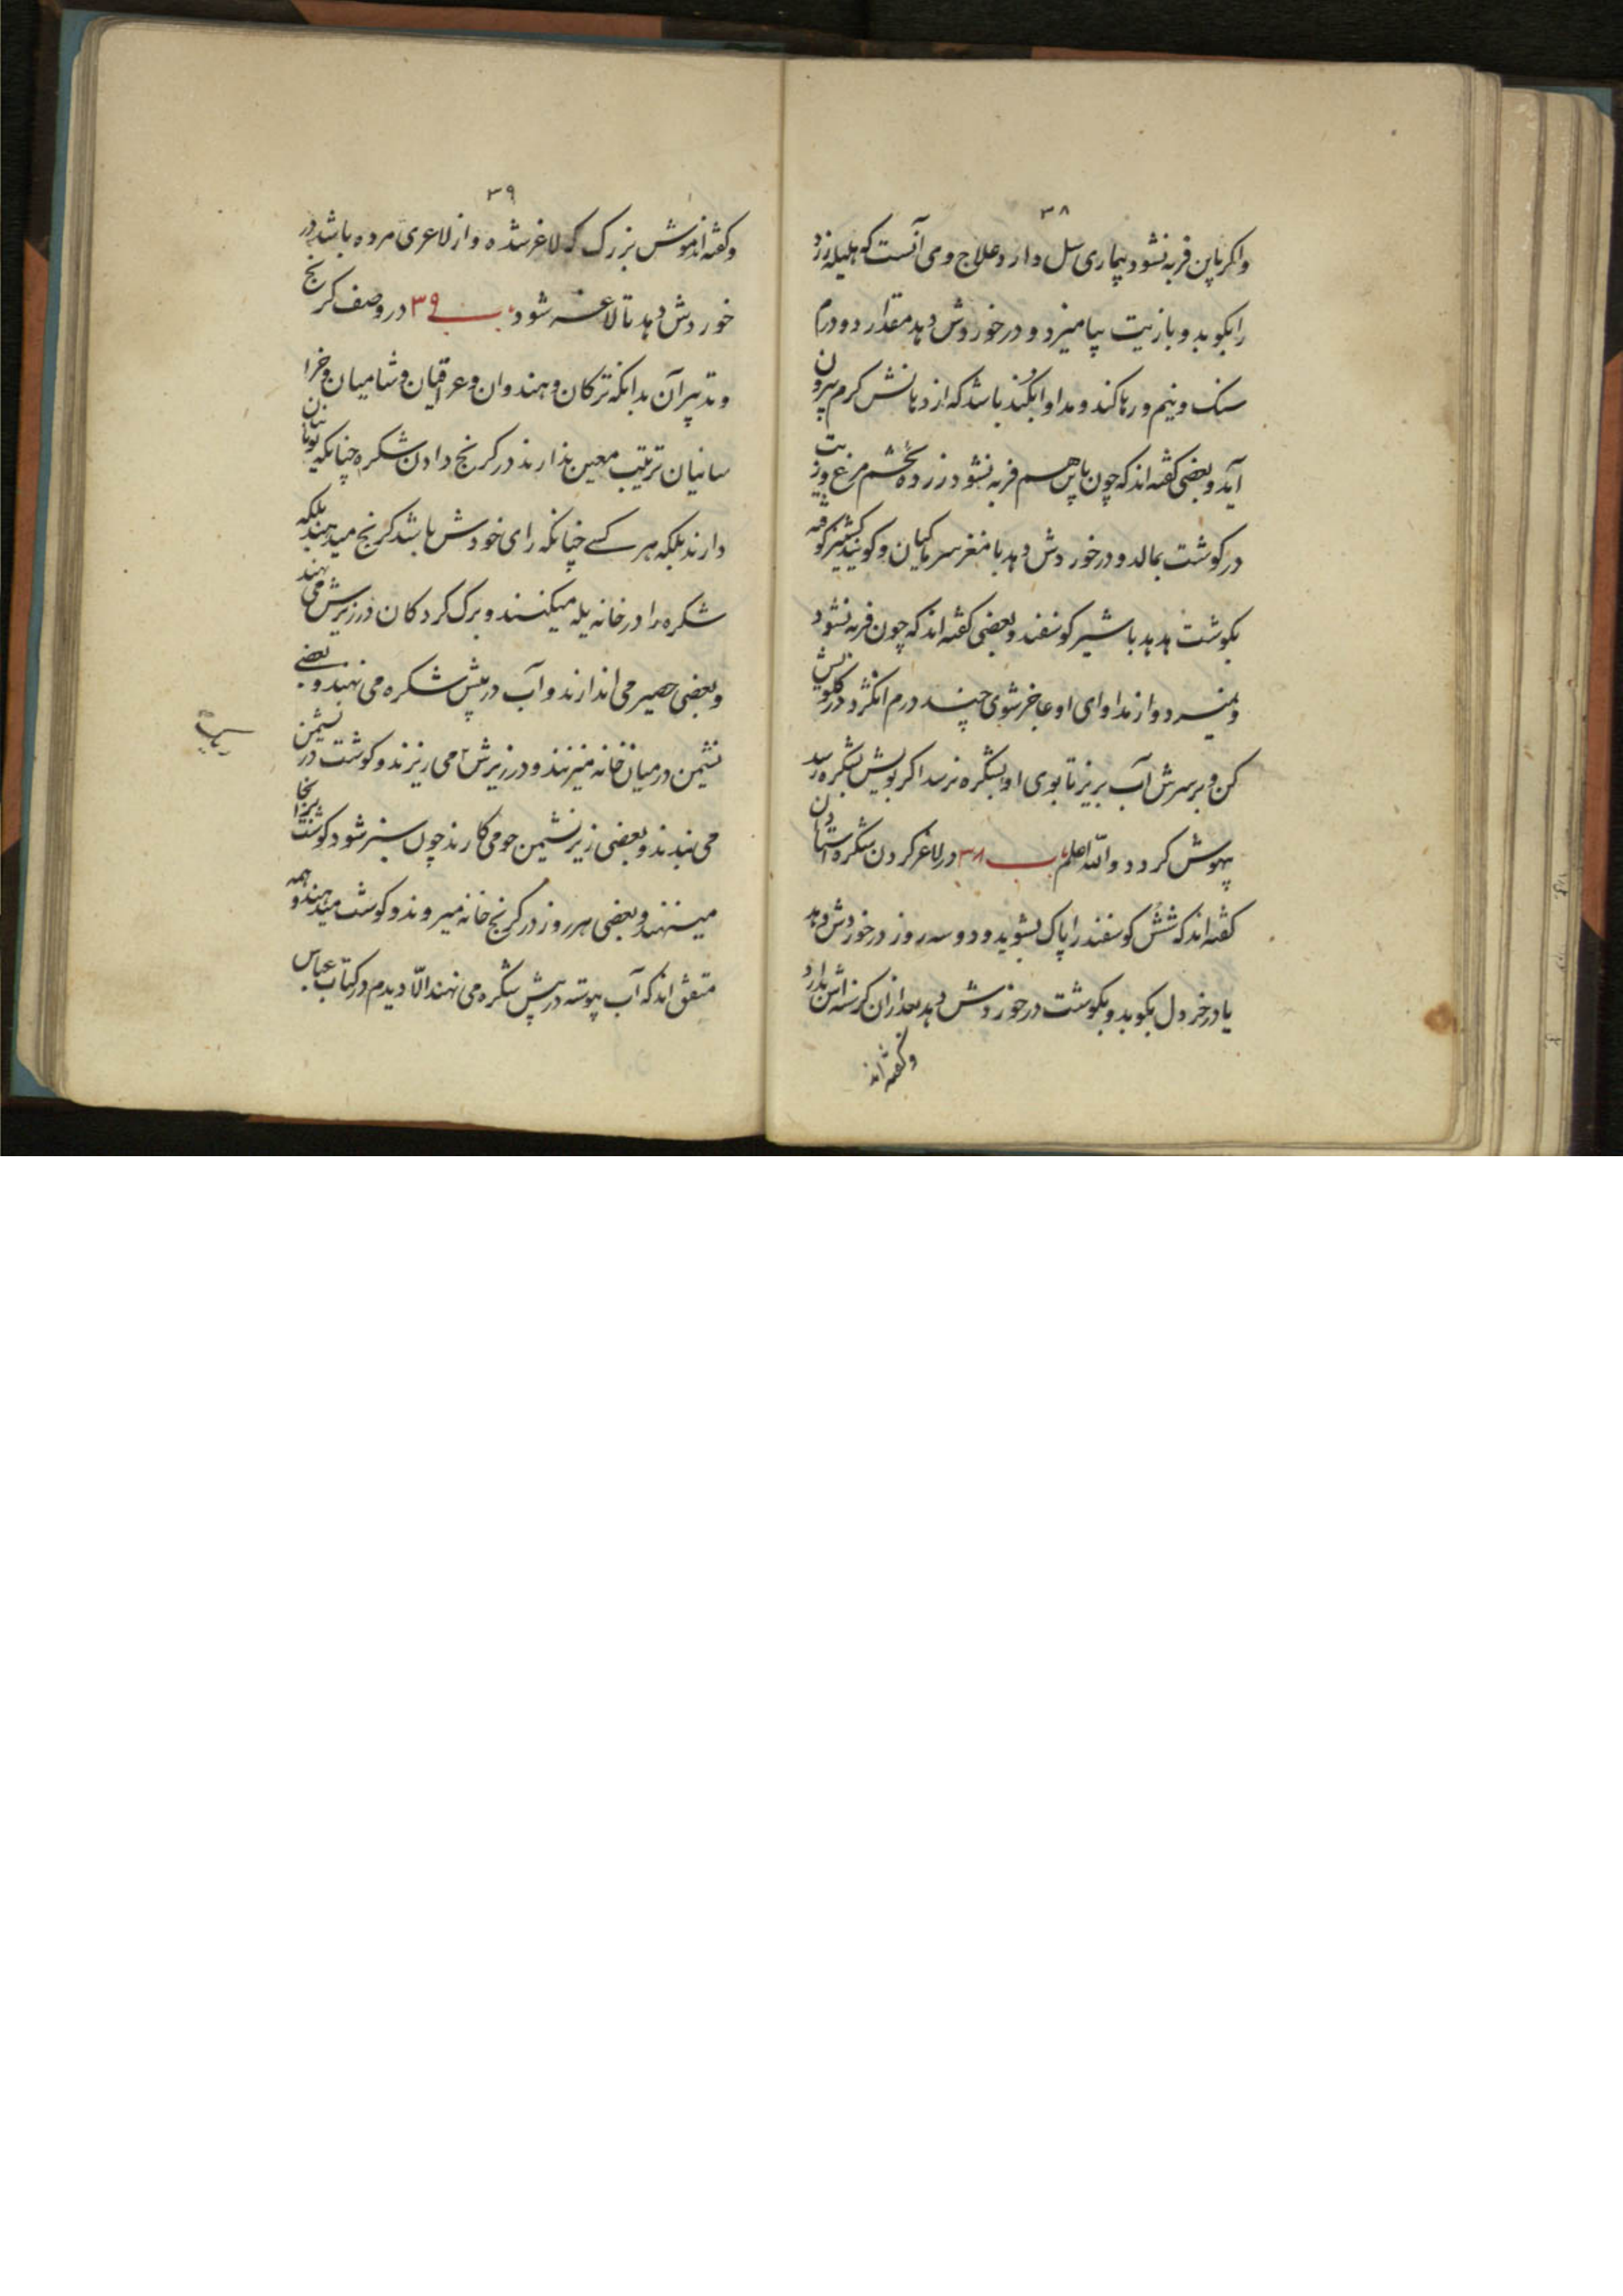 ۳۸
واکر باین فربه نشود بیماری سل دارد علاج وی آنست که هلیله زرد
را بکوبد و با زیت بیامیزد و در خوردش دهد مقدار دو درم
سنک و نیم و رها کند و مداوا بکند باشد که از دهانش کرم بیرون
آید و بعضی کفته اند که چون باین هم فربه نشود زرده تخم مرغ و زیت
در کوشت بمالد و در خوردش دهد با مغز سر ماکیان و کویند کشنیز کوفته
بکوشت هدهد با شیر کوسفند و بعضی کفته اند که چون فربه نشود
و نمیرد و از مداوای او عاجز شوی چند درم انکژد در کلویش
کن و بر سرش آب بریز تا بوی او بشکره نرسد اکر بویش بشکره رسد
بیهوش کردد والله اعلم باب ۳۸ در لاغر کردن شکره استادان
کفته اند که شش کوسفند را پاک بشوید و دو سه روز در خوردش دهد
یا در خردل بکوبد و بکوشت در خوردش دهد بعد از آن کرسنه اش بدارد
و کفته اند
۳۹
و کفته اند موش بزرک که لاغر شده و از لاغری مرده باشد در
خوردش دهد تا لاغر شود باب ۳۹ در وصف کرنج
و تدبیر آن بدانکه ترکان و هندوان و عراقیان و شامیان و خرا
سانیان ترتیب معین ندارند در کرنج دادن شکره چنانکه یونانیان
دارند بلکه هر کسے چنانکه رای خودش باشد کرنج میدهند بلکه
شکره را در خانه یله میکنند و برک کردکان در زیرش می نهند
و بعضی حصیر می اندازند و آب در پیش شکره می نهند و بعضے
نشیمن در میان خانه میزنند و در زیرش می ریزند و کوشت در نشیمن
ریک
می بندند و بعضی زیر نشیمن جو می کارند چون سبز شود کوشت آنجا
مینهند و بعضی هر روز در کرنج خانه میروند و کوشت میدهند و همه
متفق اند که آب پیوسته در پیش شکره می نهند الّا دیدم در کتاب عباس